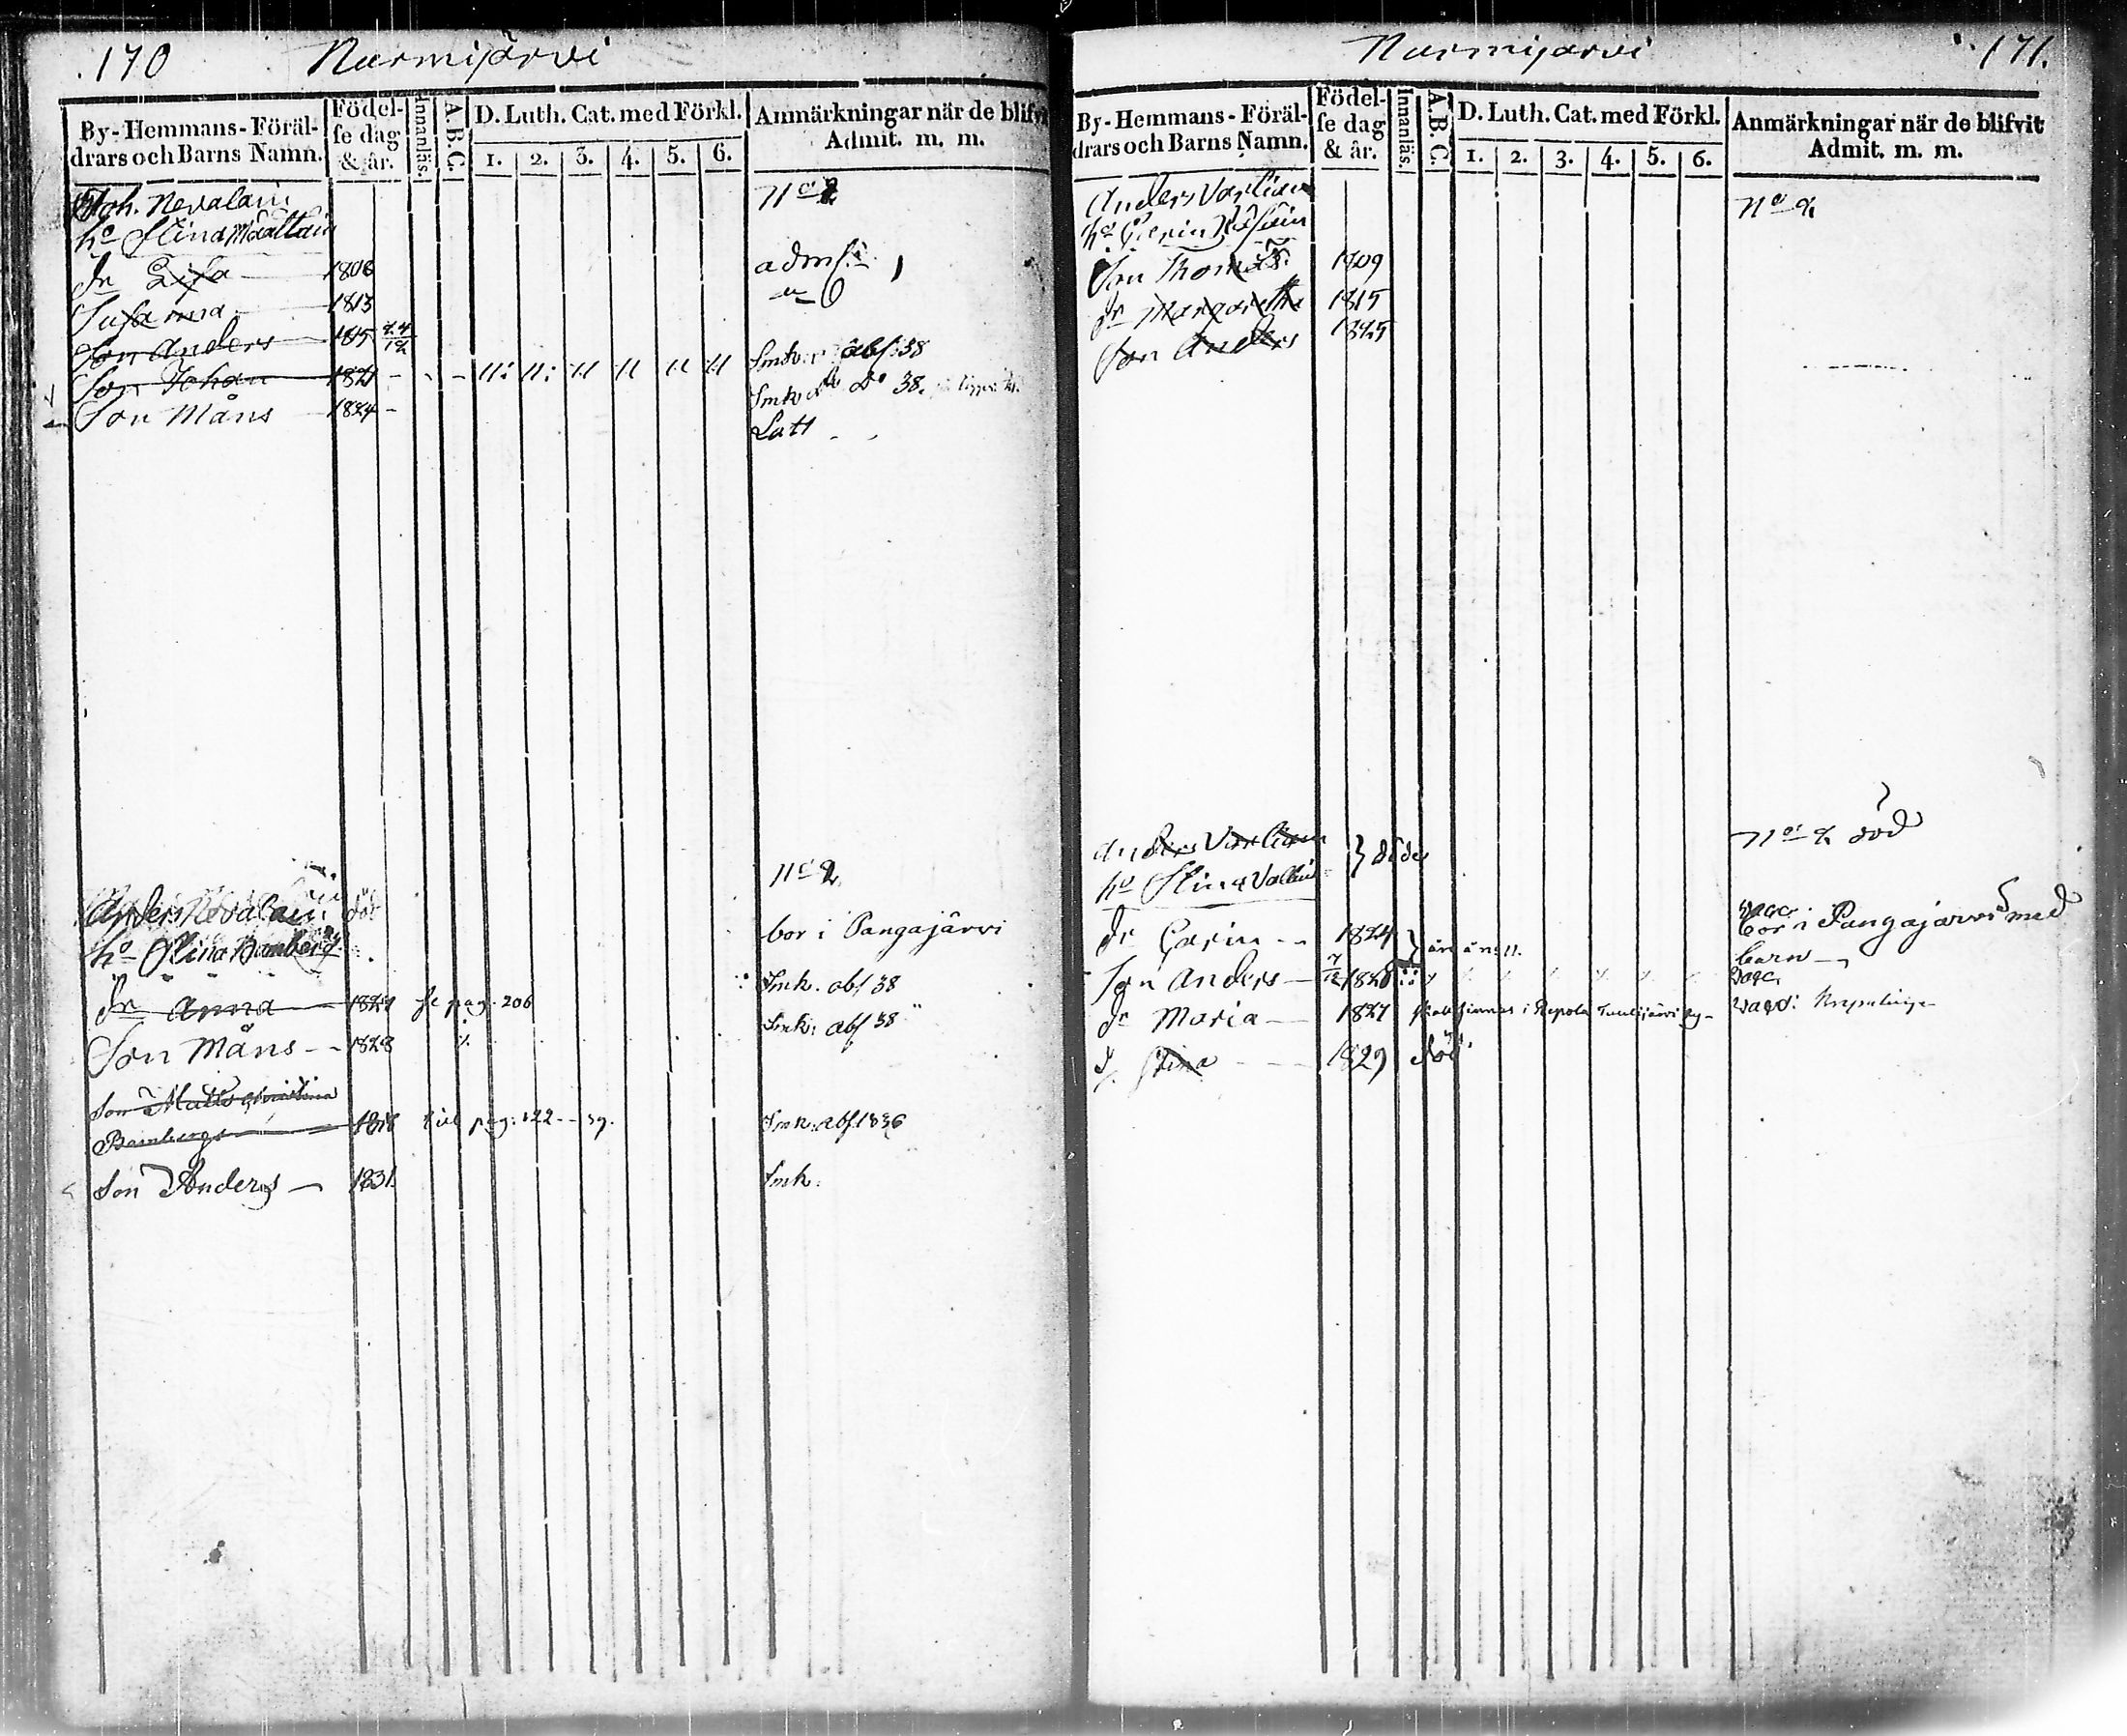 170 Nurmijärvi
By-Hemmans-Föräl-
drars och Barns Namn.
Födel-
se dag
& år.
Innanläs.
A.B.C.
D. Luth. Cat. med Förkl.
1. 2. 3. 4. 5. 6.
Anmärkningar när de blifvit
Admit. m. m.
Joh. Nevalain No 2
ho Stina Määttain
dr Lisa 1806 adms.
Susanna 1813
Son Anders 1815 Smkor abs: 38
Son Johan 1821 - - - 11: 11: 11 11 11 11 Smk do 38.
Son Måns 1824 - Latt
No 2
Anders Nevalain död
ho Stina Bamberg bor i Pangajärvi
dr Anna 1827 se pag. 206 Smk. abs 38
Son Måns - - 1828 Smk: abs 38
Son Matts Christina
Bambergs 1818 till pag: 122 - - 39. Smk: abs 1836
Son Anders 1831 Smk:
Nurmijärvi 171.
By-Hemmans-Föräl-
drars och Barns Namn.
Födel-
se dag
& år.
Innanläs.
A.B.C.
D. Luth. Cat. med Förkl.
1. 2. 3. 4. 5. 6.
Anmärkningar när de blifvit
Admit. m. m.
Anders Vartiain No 2
ho Carin
Son Thomas 1809
dr Margaretha 1815
Son Anders 1825
Anders Vartiain } döde No 2 död
ho Stina
dr Carin - - 1824 bor i Pangajärvi med
barn
Son Anders 7/12 1826
dr Maria 1827 skall finnas i Repola Tuulijärvi by
d. Stina 1829 död